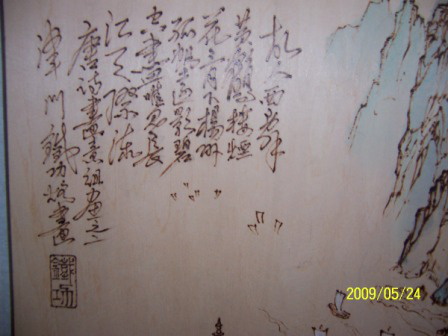 故人西辞
黄鶴楼烟
花三月下揚州
孤帆远影碧
空尽唯见长
江天际流
唐诗画意组画之二
津门鐵功烙画
鐵功
2009/05/24